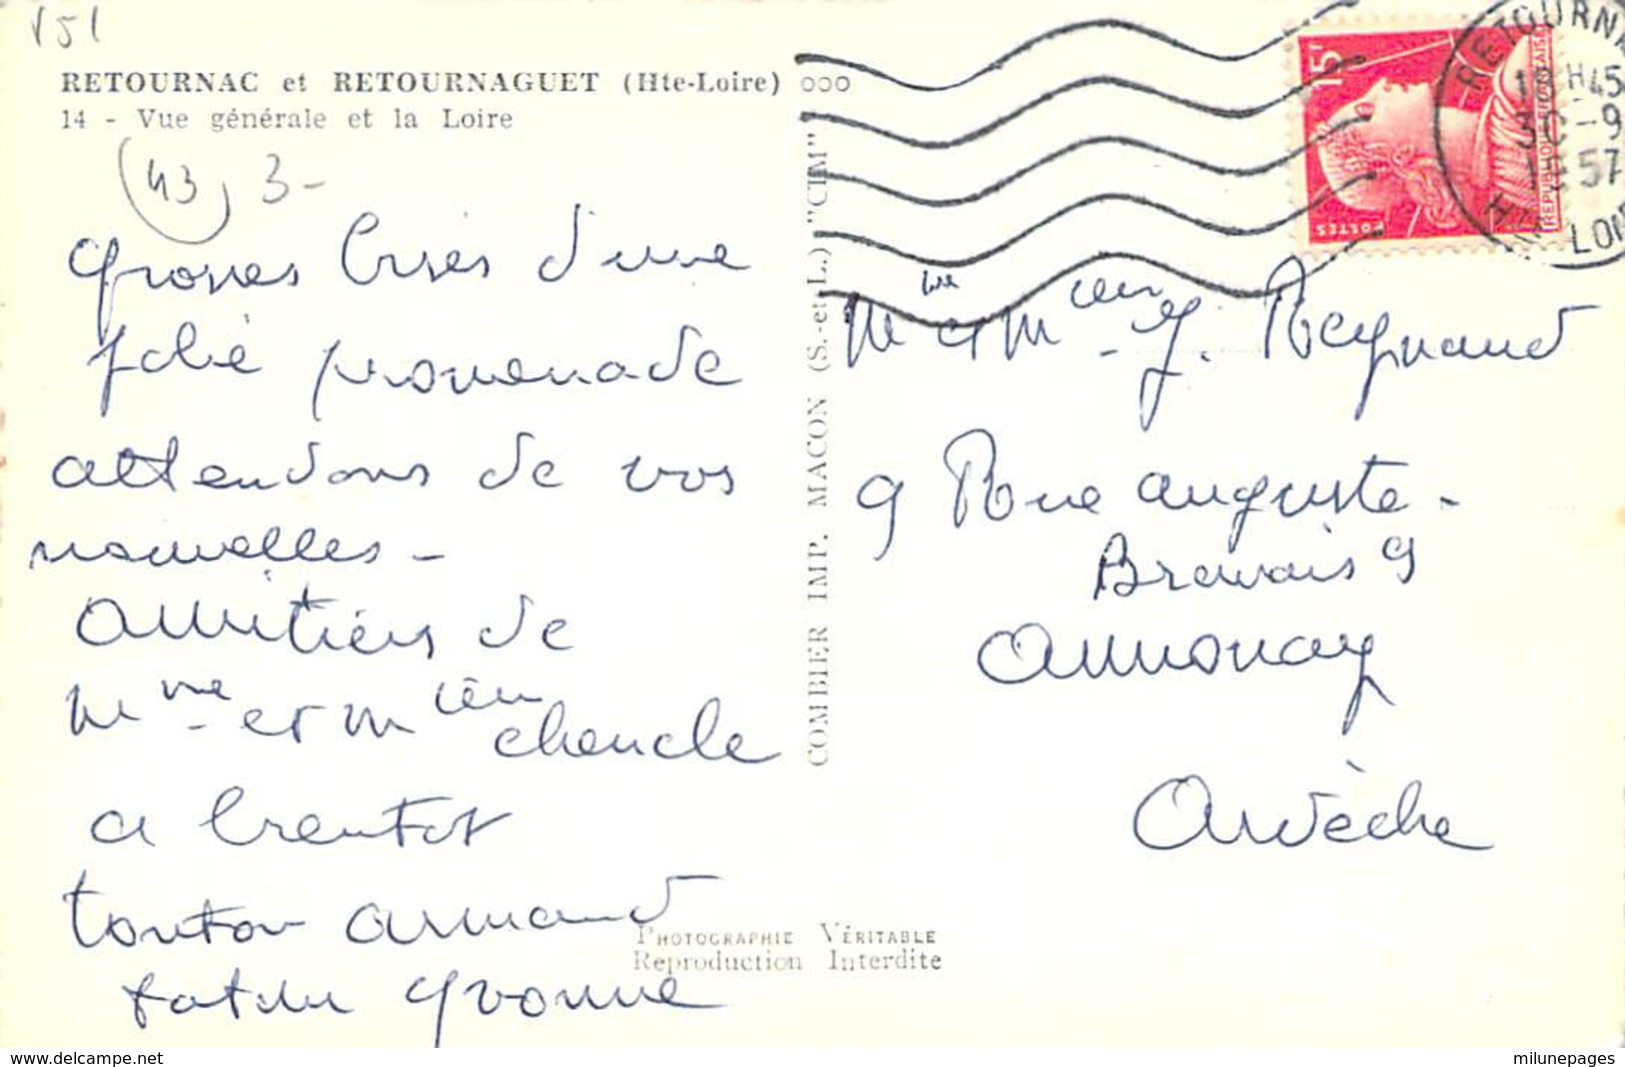 V51
RETOURNAC et RETOURNAGUET (Hte-Loire) ooo
14 - Vue générale et la Loire
(43) 3-
Grosses bises d'une
jolie promenade
attendons de vos
nouvelles -
Amitiés de
Mme et M
a bientot
tonton Armand
tatan Yvonne
COMBIER IMP. MACON (S.-et-L.) "CIM"
PHOTOGRAPHIE VÉRITABLE
Reproduction Interdite
15F
POSTES
REPUBLIQUE FRANÇAISE
RETOURNA
18H45
30-9
1957
HTE LOIR
Me et M J. Reynaud
9 Rue Auguste-
Bravais 9
Annonay
Ardèche
www.delcampe.net
milunepages